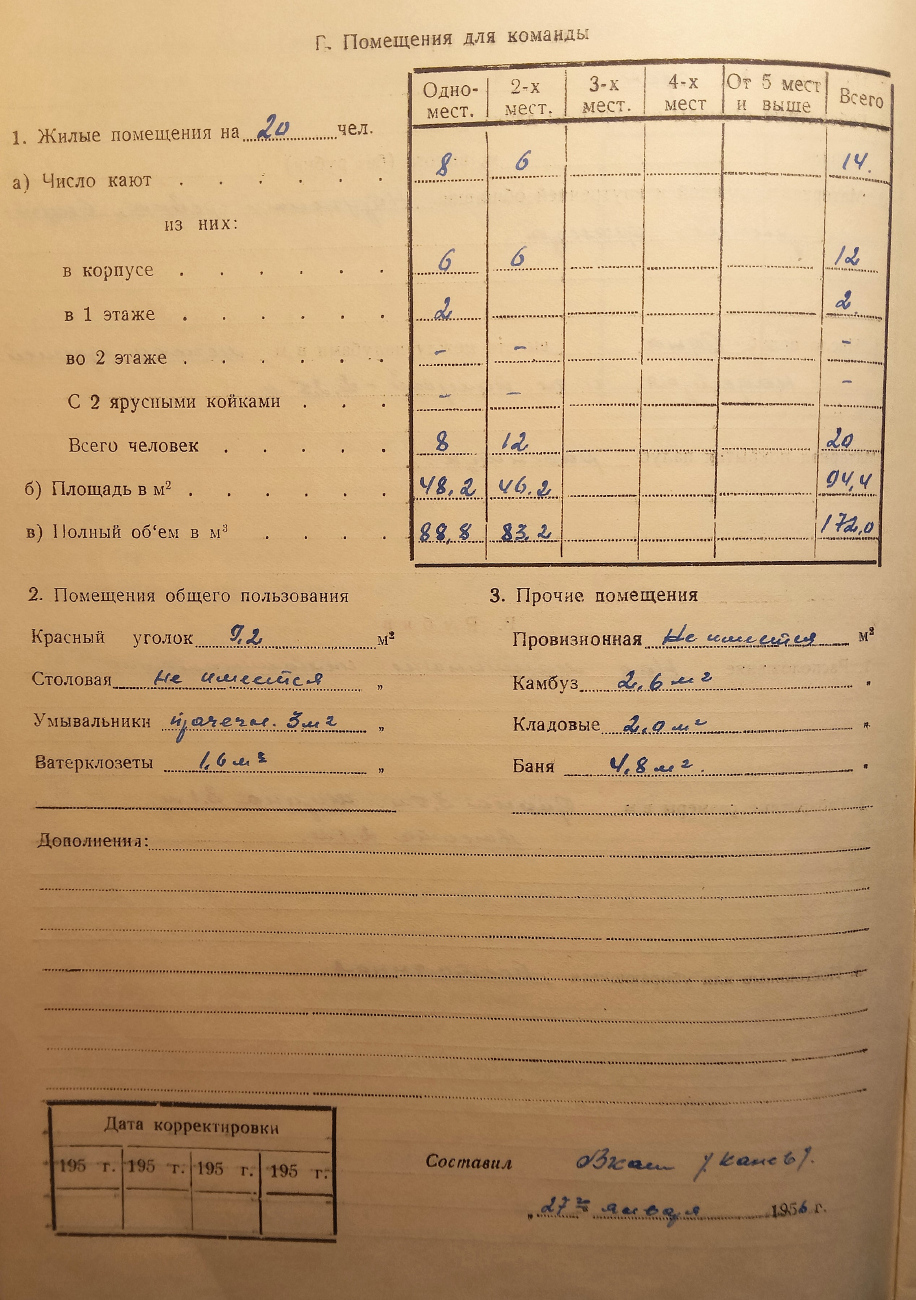 Г. Помещения для команды
Одно-мест. 2-х мест. 3-х мест. 4-х мест От 5 мест и выше Всего
1. Жилые помещения на 20 чел.
а) Число кают . . . . . . 8 6 14.
из них:
в корпусе . . . . . . 6 6 12
в 1 этаже . . . . . . 2 2
во 2 этаже . . . . . . - - -
С 2 ярусными койками . . . - - -
Всего человек . . . . . 8 12 20
б) Площадь в м² . . . . . . 48,2 46.2 94,4
в) Полный об'ем в м³ . . . . 88,8 83,2 172,0
2. Помещения общего пользования
Красный уголок 9,2 м²
Столовая Не имеется „
Умывальники прачечн. 3м² „
Ватерклозеты 1,6 м² „
3. Прочие помещения
Провизионная Не имеется м²
Камбуз 2,6 м² „
Кладовые 2,0 м² „
Баня 4,8 м². „
Дополнения:
Дата корректировки
195 г. 195 г. 195 г. 195 г.
Составил /Канев/.
„27го января 1956 г.